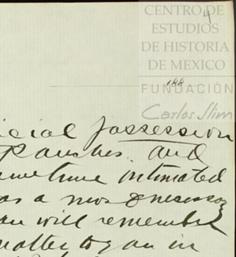 CENTRO DE
ESTUDIOS
DE HISTORIA
DE MEXICO
FUNDACIÓN
Carlos Slim
icial possession
Ranches. and
me time intimated
as a
an will remember
matter to you in